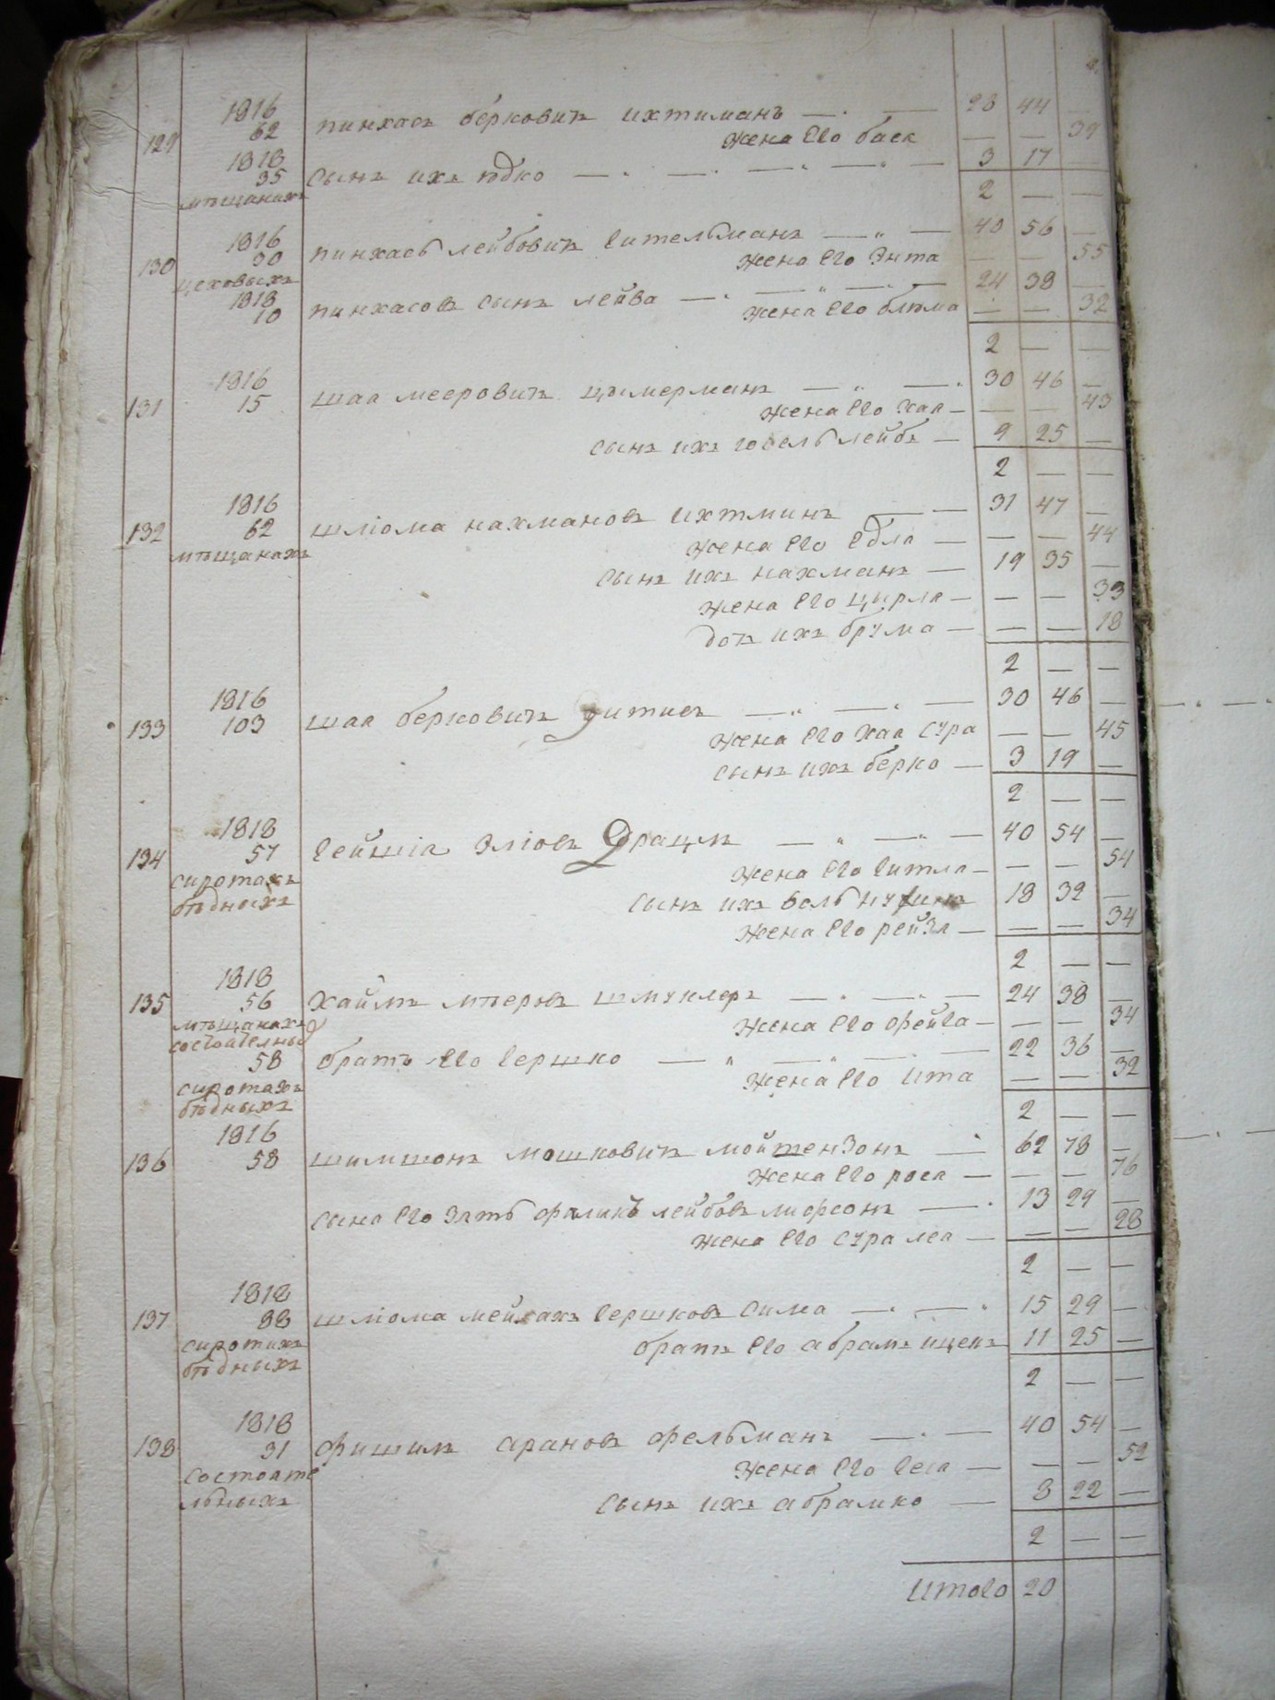 1816
129 62 пинхасъ берковичъ ихтиманъ — 28 44 —
жена его бася — — 39
1818
35 сынъ ихъ юдко — 3 17 —
мѣщанихъ 2 — —
1816 40 56 —
130 30 пинхасъ лейбовичъ гительманъ —
цеховыхъ жена его Энта — — 55
1818 24 38 —
10 пинхасовъ сынъ лейба —
жена его блюма — — 32
2 — —
1816 30 46 —
131 15 шая мееровичъ цымерманъ —
жена его хая — — — 43
сынъ ихъ госель лейбъ — 9 25 —
2 — —
1816 31 47 —
132 62 шліома нахмановъ ихтминъ —
мѣщанахъ жена его Едля — — — 44
сынъ ихъ нахманъ — 19 35 —
жена его цирля — — — 33
дочъ ихъ брума — — — 18
2 — —
1816 30 46 —
133 103 шая берковичъ —
жена его хая сура — — 45
сынъ ихъ берко — 3 19 —
2 — —
1818 40 54 —
134 57 гейшіа Эліовъ Драцмъ —
сиротахъ жена его гитля — — — 54
бѣдныхъ сынъ ихъ вольъ 18 32 —
жена его рейзя — — — 34
2 — —
1818
135 56 хаймъ мѣеровъ шмуклеръ — 24 38 —
мѣщанахъ жена его фейга — — — 34
состоателныхъ
58 братъ его гершко — 22 36 —
сиротахъ жена его ита — — 32
бѣдныхъ
2 — —
1816
136 58 шимшонъ мошковичъ мойтензонъ — 62 78 —
жена его роса — — — 76
сына его зять фаликъ лейбовъ лифсонъ — 13 29 —
жена его сура леа — — — 28
2 — —
1818
137 38 шліома мейлахъ гершковъ сима — 15 29 —
сиротихъ братъ его абрамъ ицекъ 11 25 —
бѣдныхъ
2 — —
1818 40 54 —
138 31 фишимъ арановъ фельманъ —
состояте жена его геся — — — 52
льныхъ сынъ ихъ абрамко — 8 22 —
2 — —
Итого 20